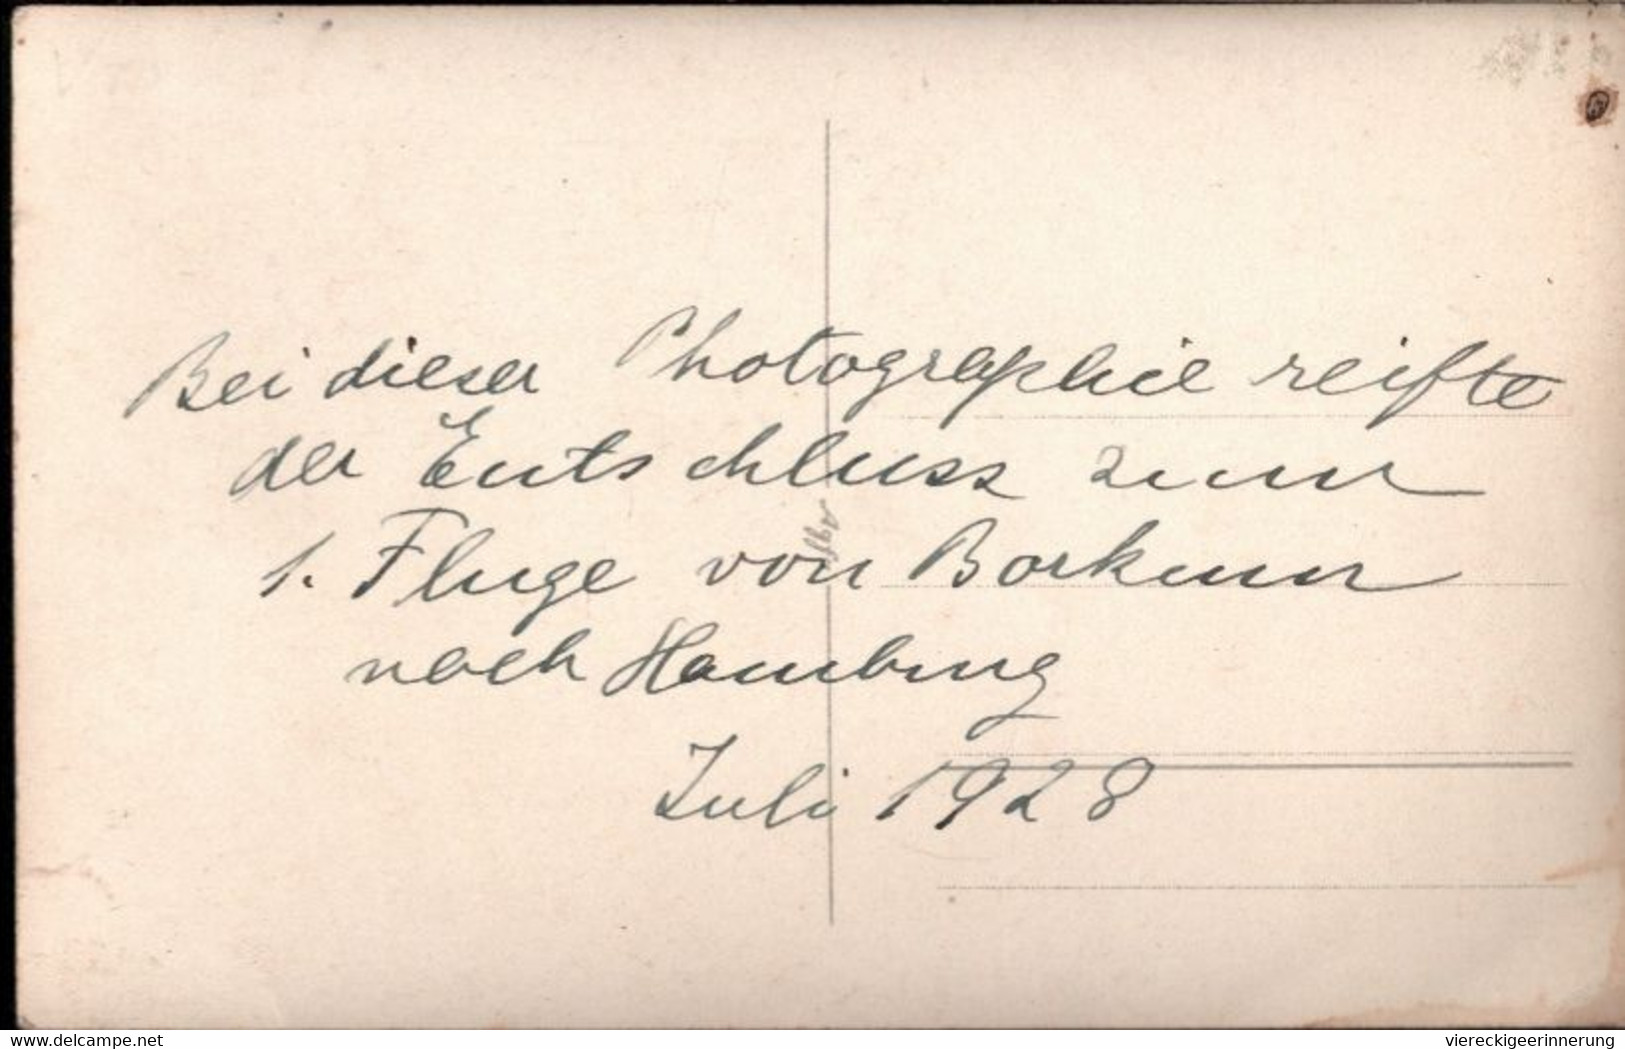 Bei dieser Photographie reifte
der Entschluss zum
1. Fluge von Borkum
nach Hamburg
Juli 1928
www.delcampe.net
viereckigeerinnerung